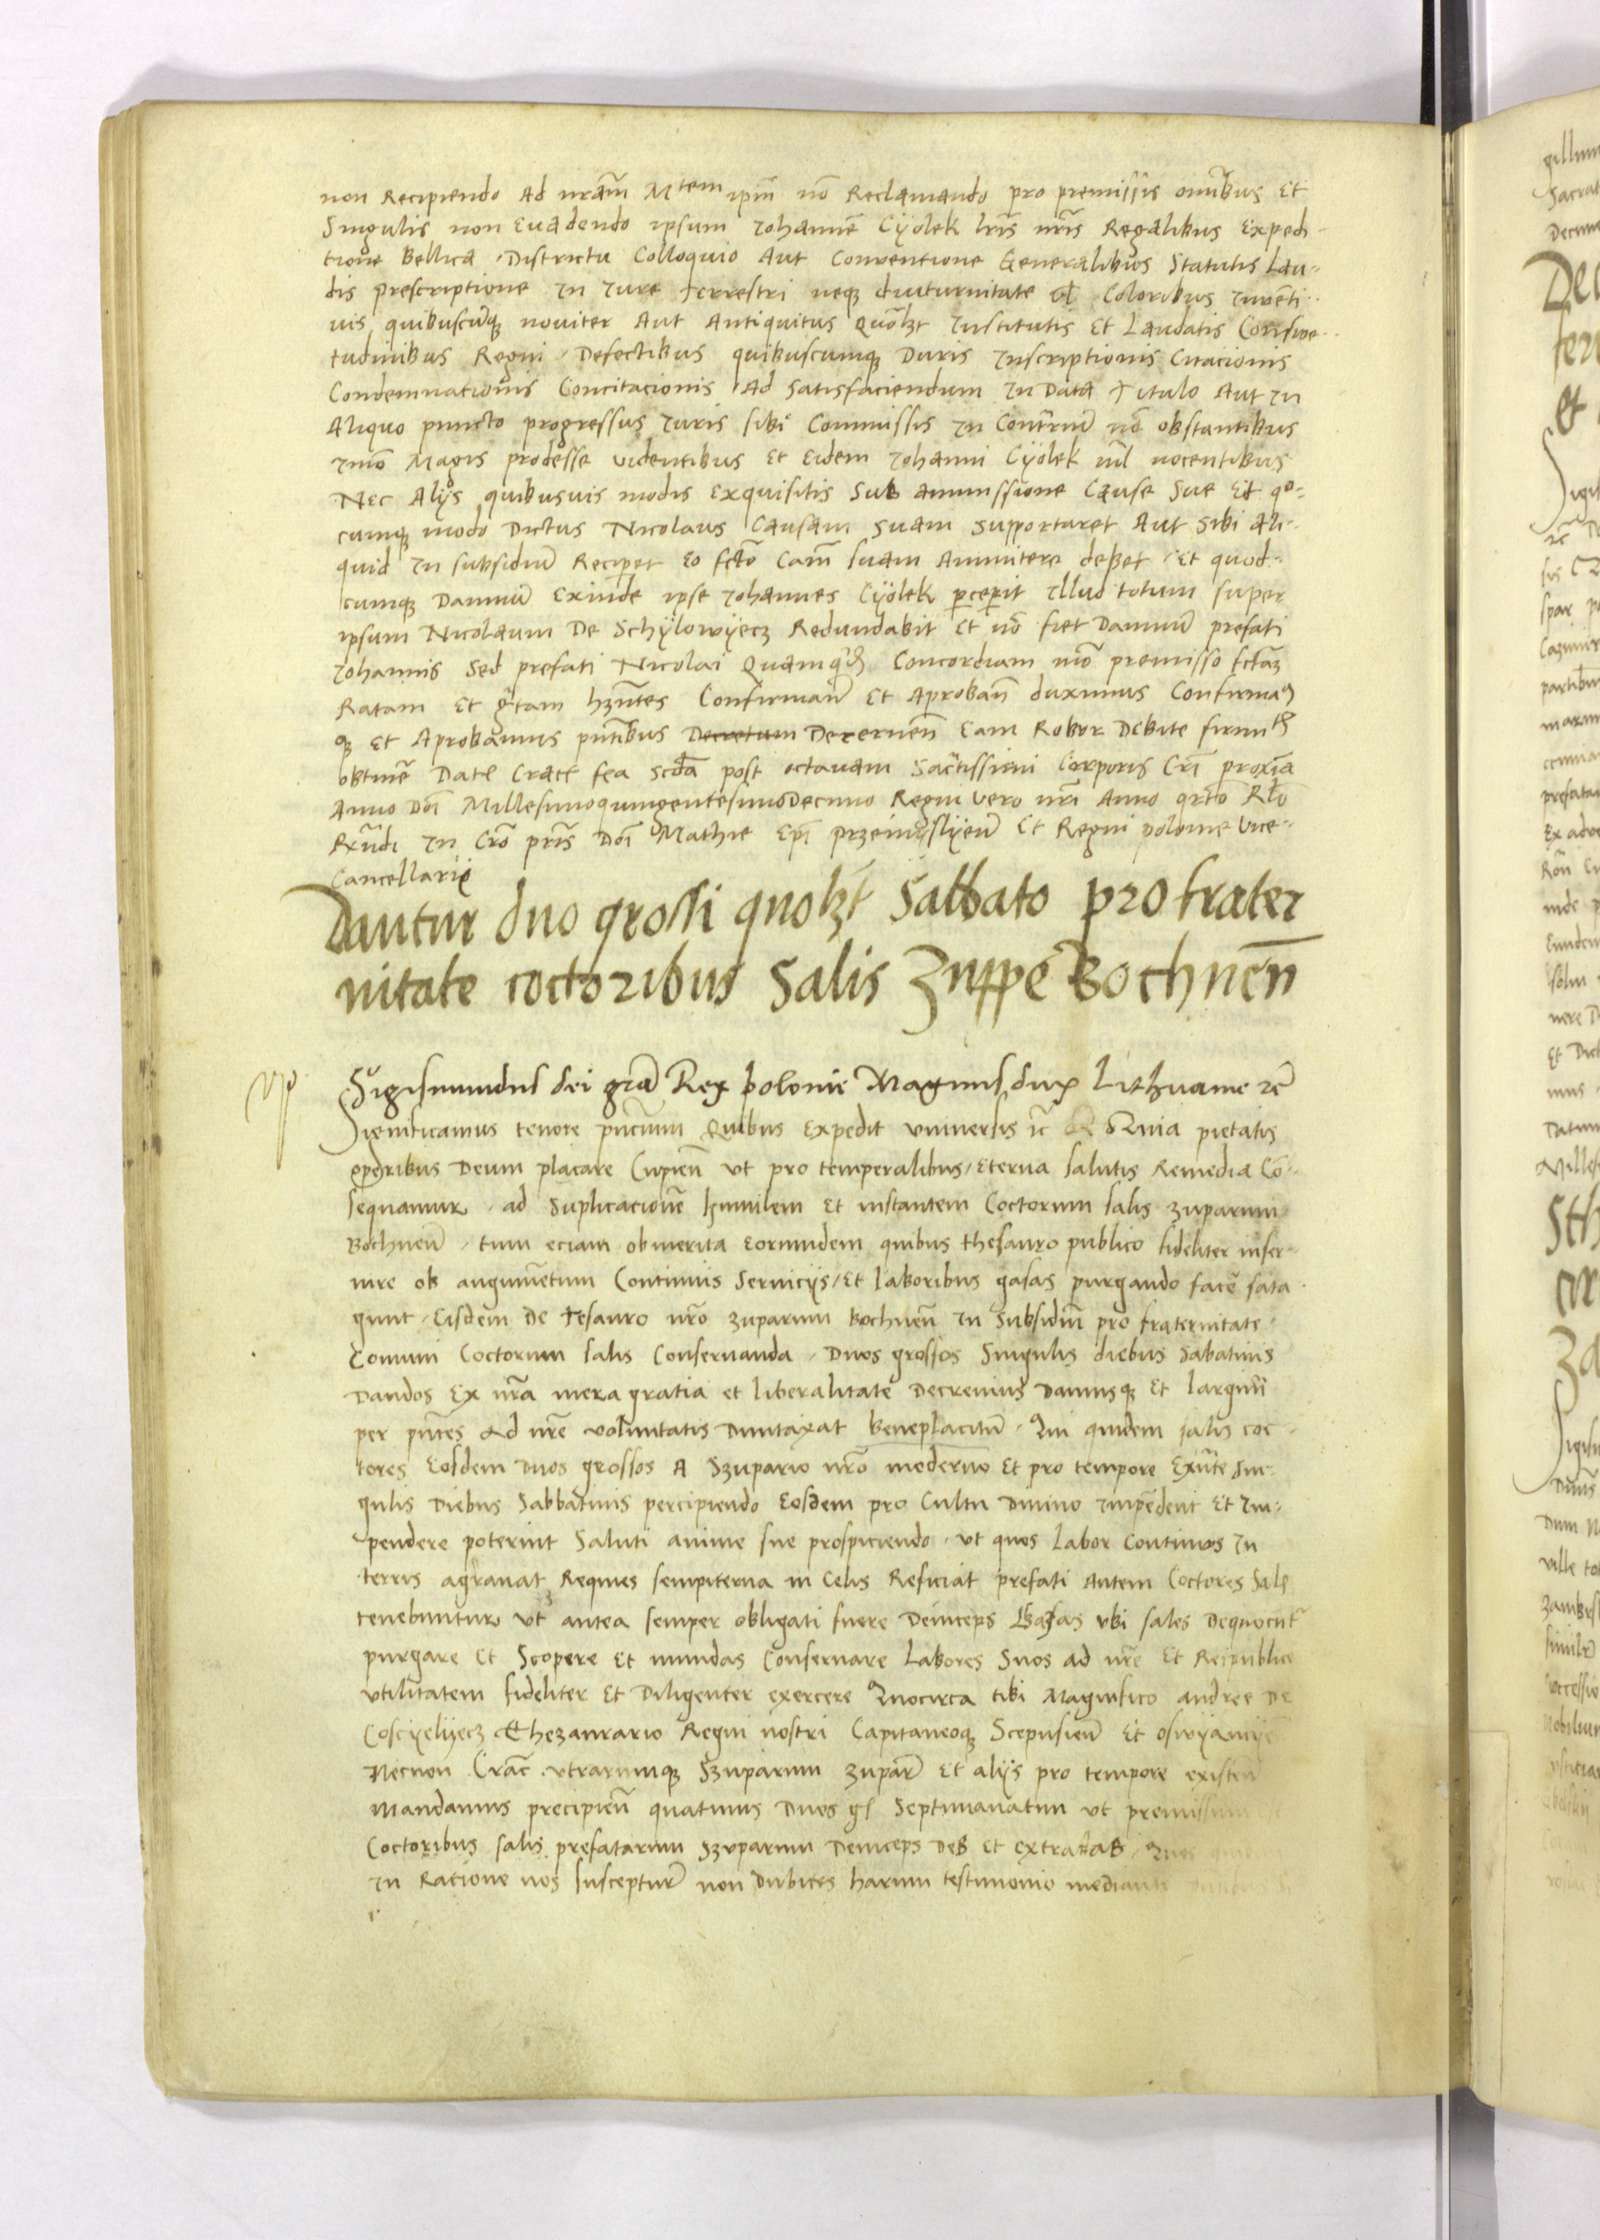 non Recipiendo Ad nrãm Mtem ipm̃ nõ Reclamando pro premissis omĩbus Et
Singulis non Evadendo ipsum Johannẽ Cÿolek lrĩs nrĩs Regalibus Expedi-
tione Bellica Districtu Colloquio Aut Conventione Generalibus Statutis Lau-
dis prescriptione In Iure terrestri neqz diuturnitate vl Coloribus Inventi-
vis quibuscũqz noviter Aut Antiquitus Quõlzt Institutis Et Laudatis Consue-
tudinibus Regni Defectibus quibuscumqz Duris Inscriptionis Citacionis
Condemnationis Concitacionis Ad Satisfaciendum In Data Titulo Aut In
Aliquo puncto progressus Iuris sibi Commissis In Contrriũ nõ obstantibus
Imõ Magis prodesse videntibus Et Eidem Johanni Cÿolek nĩl nocentibus
Nec Alÿs quibusvis modis Exquisitis Sub ammissione Cause Sue Et qo-
cumqz modo Dictus Nicolaus Causam Suam Supportaret Aut Sibi Ali-
quid In subsidiũ Recipet Eo fctõ Cam̃ suam Ammitere debet Et quod-
cumqz Damnũ Exinde ipse Johannes Cÿolek pceperit Illud totum super
ipsum Nicolaum De Schÿlowÿecz Redundabit Et nõ fiet Damnũ prefati
Johannis Sed prefati Nicolai Quamqdẽ Concordiam mõ premisso fctãz
Ratam Et grtam hznñtes Confirmanð Et Aprobanð duximus Confirmaq
qz Et Aprobamus pñtibus Decretum Decernenñ Eam Robor Debite firmitt
obtinẽ Datt Cracč fea scðã post octavam Sactissimi Corporis Crĩ proxĩa
Anno Doĩ MillesimoquingentesimoDecimo Regni vero nrĩ Anno qrto Rlõ
Rxñdi In Crõ prĩs Doĩ Mathie Epĩ przemÿslÿenñ Et Regni polonie Vice-
Cancellarÿ
Dantur duo grossi quolzt Sabbato pro frater
nitate coctoribus Salis Zuppe Bochnenñ
Sigismundus dei grã Rex polonie Magnus dux Lithuanie zc̃
Significamus tenore pñcium Quibus Expedit universis zc̃ Q Omnia pietatis
operibus Deum placare Cupienñ ut pro temperalibus eterna salutis Remedia Cõ-
sequamur ad Suplicacionẽ humilem Et instantem Coctorum salis zuparum
Bochnenñ tum eciam ob merita eorumdem quibus thesauro publico fideliter inser-
vire ob augumẽtum Continuis Servicÿs Et laboribus gasas purgando facẽ sata
gunt Eisdem De Tesauro nrõ zuparum Bochnenñ In Subsidiũ pro fraternitate
Comuni Coctorum salis Conservanda Duos grossos Singulis diebus Sabatinis
Dandos Ex nrã mera gratia et liberalitate Decrevimus Damusqz Et largimũr
per pñtes Ad nrẽ voluntatis Dumtaxat beneplacitũ Qui quidem salis coc-
tores Eosdem Duos grossos A Szupario nrõ moderno Et pro tempore Exñte Sin-
gulis Diebus Sabbatinis percipiendo Eosdem pro Cultu Divino Impẽdent Et Im-
pendere poterint Saluti anime sue prospiciendo ut quos labor Continuos In
terris agrãvat Requies sempiterna in Celis Reficiat prefati Autem Coctores Salis
tenebuntur ut antea semper obligati fuere Deinceps Gasas ubi sales Dequocunt
purgare Et Scopere Et mundas Conservare Labores Suos ad nrẽ Et Reipublice
Utilitatem fideliter Et Diligenter exercere Quocirca tibi Magnifico andree De
Cosczelÿecz Thezaurario Regni nostri Capitaneoqz Scepusienñ Et oswÿamÿen
Necnon Cracč utrarumqz Szuparum zuparĩ Et aliÿs pro tempore existenñ
Mandamus precipienñ quatinus Duos gs Septimanatim ut premissum
Coctoribus salis prefatarum Szuparum Deinceps Deb Et extradab
In Ratione nos Suscepturz non Dubites harum testimonio mediante